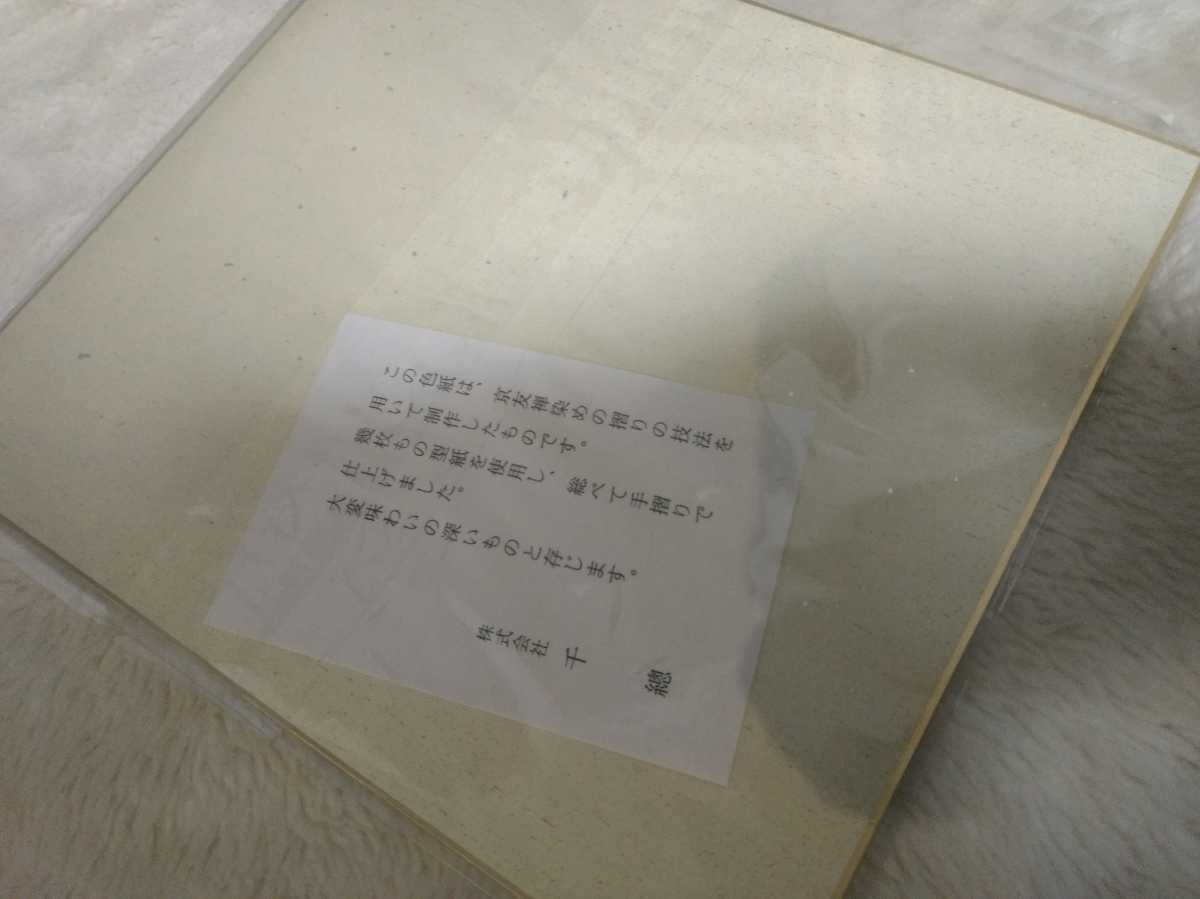 この色紙は、京友禅染めの摺りの技法を
用いて制作したものです。
幾枚もの型紙を使用し、総べて手摺りで
仕上げました。
大変味わいの深いものと存じます。
株式会社 千 總